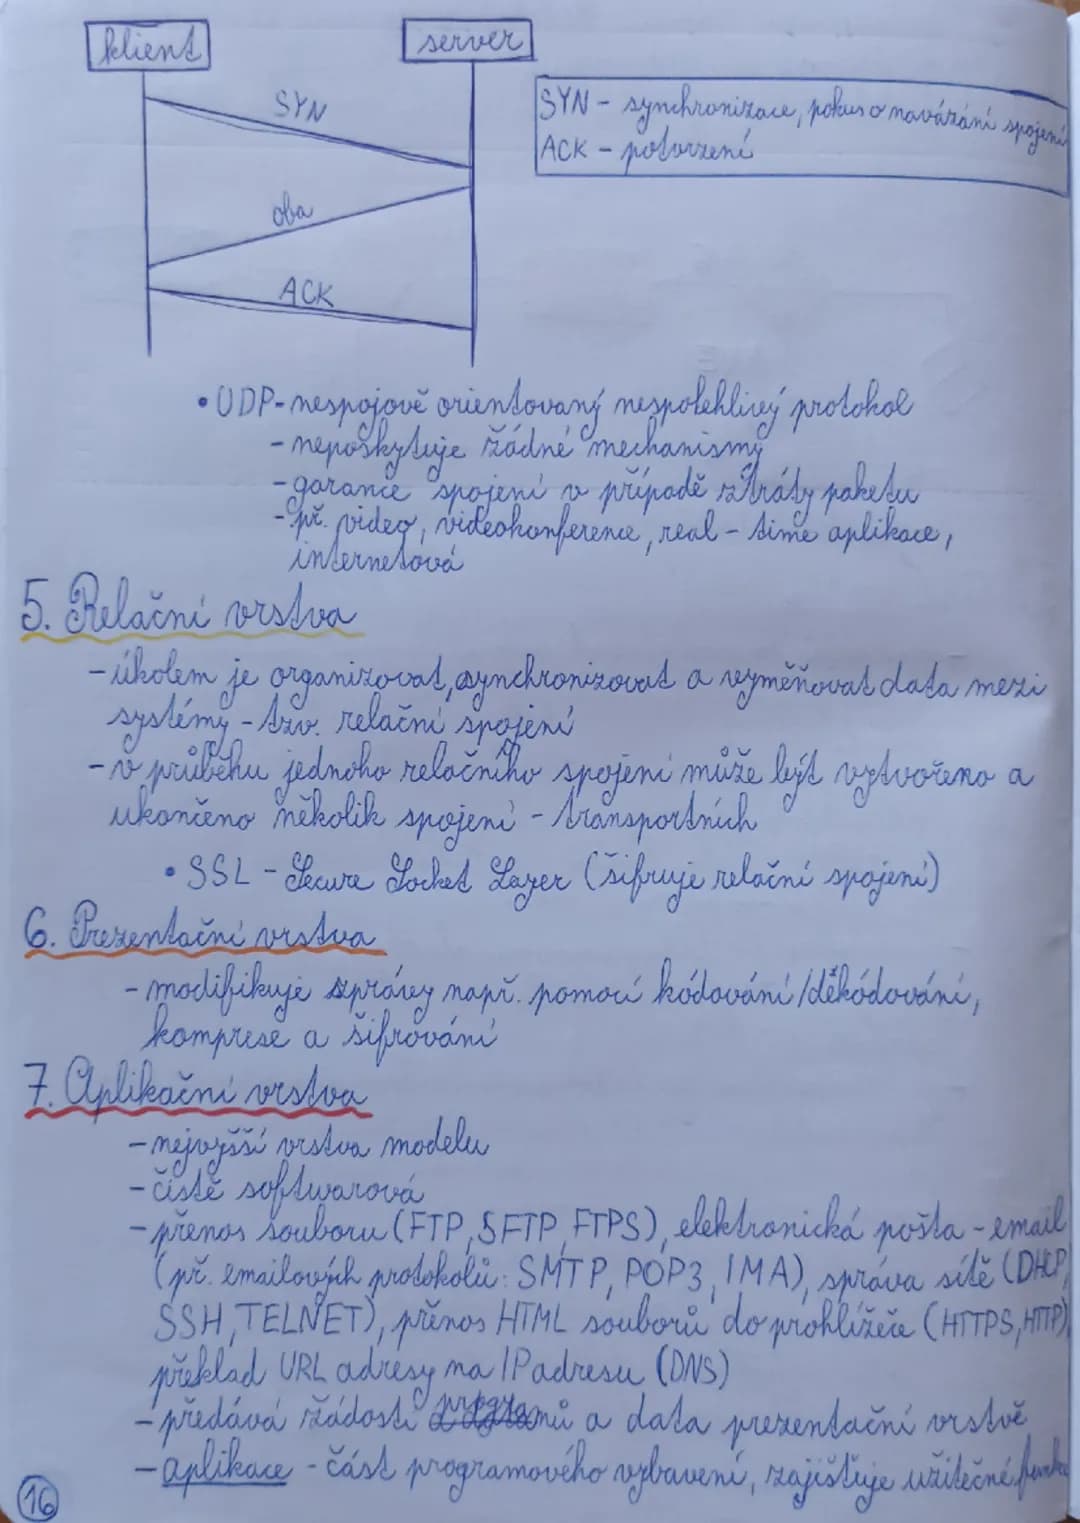 klient server
SYN
SYN - synchronizace, pokus o navázání spojení
ACK - potvrzení
oba
ACK
• UDP - nespojově orientovaný nespolehlivý protokol
- neposkytuje žádné mechanismy
- garance spojení v případě ztráty paketu
- př. video, videokonference, real - time aplikace,
internetová
5. Relační vrstva
- úkolem je organizovat, synchronizovat a vyměňovat data mezi
systémy - tzv. relační spojení
- v průběhu jednoho relačního spojení může být vytvořeno a
ukončeno několik spojení - transportních
• SSL - Secure Socket Layer (šifruje relační spojení)
6. Prezentační vrstva
- modifikuje zprávy např. pomocí kódování/děkódování,
komprese a šifrování
7. Aplikační vrstva
- nejvyšší vrstva modelu
- čistě softwarová
- přenos souboru (FTP, SFTP, FTPS), elektronická pošta - email
(př. emailových protokolů: SMTP, POP3, IMA), správa sítě (DHCP,
SSH, TELNET), přenos HTML souborů do prohlížeče (HTTPS, HTTP),
překlad URL adresy na IP adresu (DNS)
- předává žádosti programů a data prezentační vrstvě
- aplikace - část programového vybavení, zajišťuje užitečné
16